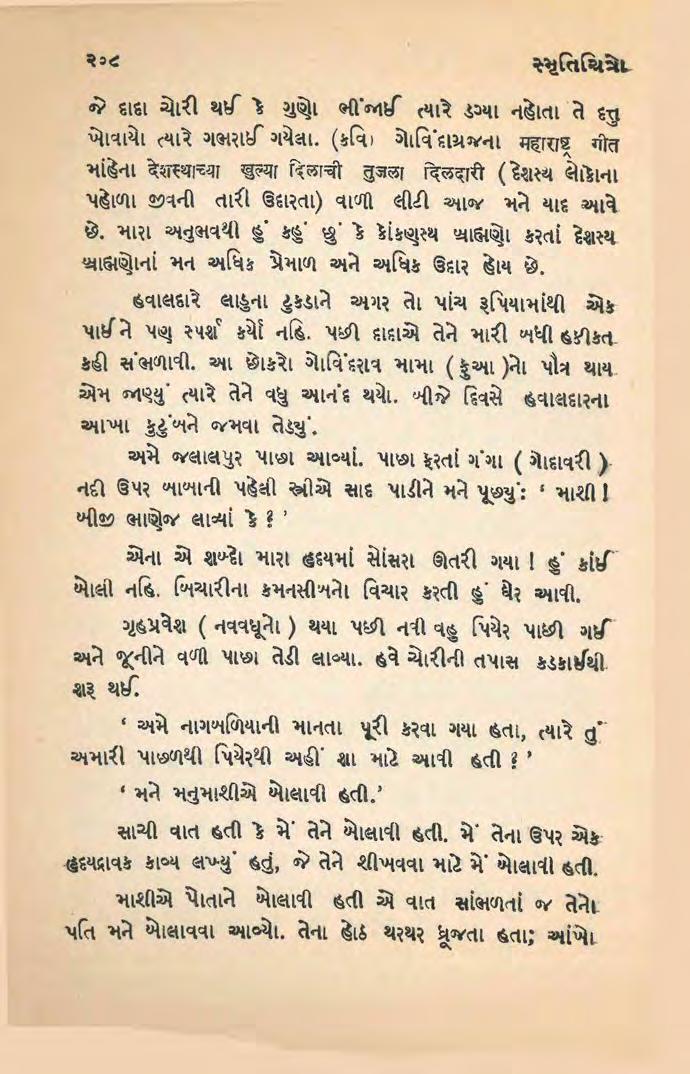 ૨૦૮ સ્મૃતિચિત્રો
જે દાદા ચોરી થઈ કે ગુણો ભીંજાઈ ત્યારે ડગ્યા નહોતા તે દત્તુ
ખોવાયો ત્યારે ગભરાઈ ગયેલા. (કવિ) ગોવિંદાગ્રજના महाराष्ट्र गीत
માંહેના देशस्थाच्या खुल्या दिलाची तुजला दिलदारी (દેશસ્થ લોકોના
પહોળા જીવની તારી ઉદારતા) વાળી લીટી આજ મને યાદ આવે
છે. મારા અનુભવથી હું કહું છું કે કોંકણસ્થ બ્રાહ્મણો કરતાં દેશસ્થ
બ્રાહ્મણોનાં મન અધિક પ્રેમાળ અને અધિક ઉદાર હોય છે.
હવાલદારે લાડુના ટુકડાને અગર તો પાંચ રૂપિયામાંથી એક
પાઈને પણ સ્પર્શ કર્યો નહિ. પછી દાદાએ તેને મારી બધી હકીકત
કહી સંભળાવી. આ છોકરો ગોવિંદરાવ મામા ( ફુઆ )નો પૌત્ર થાય
એમ જાણ્યું ત્યારે તેને વધુ આનંદ થયો. બીજે દિવસે હવાલદારના
આખા કુટુંબને જમવા તેડ્યું.
અમે જલાલપુર પાછા આવ્યાં. પાછા ફરતાં ગંગા ( ગોદાવરી )
નદી ઉપર બાબાની પહેલી સ્ત્રીએ સાદ પાડીને મને પૂછ્યું: ‘ માશી !
બીજી ભાણેજ લાવ્યાં કે ? ’
એના એ શબ્દો મારા હૃદયમાં સોંસરા ઊતરી ગયા ! હું કાંઈ
બોલી નહિ. બિચારીના કમનસીબનો વિચાર કરતી હું ઘેર આવી.
ગૃહપ્રવેશ ( નવવધૂનો ) થયા પછી નવી વહુ પિયેર પાછી ગઈ
અને જૂનીને વળી પાછા તેડી લાવ્યા. હવે ચોરીની તપાસ કડકાઈથી
શરૂ થઈ.
‘ અમે નાગબળિયાની માનતા પૂરી કરવા ગયા હતા, ત્યારે તું
અમારી પાછળથી પિયેરથી અહીં શા માટે આવી હતી ? ’
‘ મને મનુમાશીએ બોલાવી હતી.’
સાચી વાત હતી કે મેં તેને બોલાવી હતી. મેં તેના ઉપર એક
હૃદયદ્રાવક કાવ્ય લખ્યું હતું, જે તેને શીખવવા માટે મેં બોલાવી હતી.
માશીએ પોતાને બોલાવી હતી એ વાત સાંભળતાં જ તેનો
પતિ મને બોલાવવા આવ્યો. તેના હોઠ થરથર ધ્રૂજતા હતા; આંખો